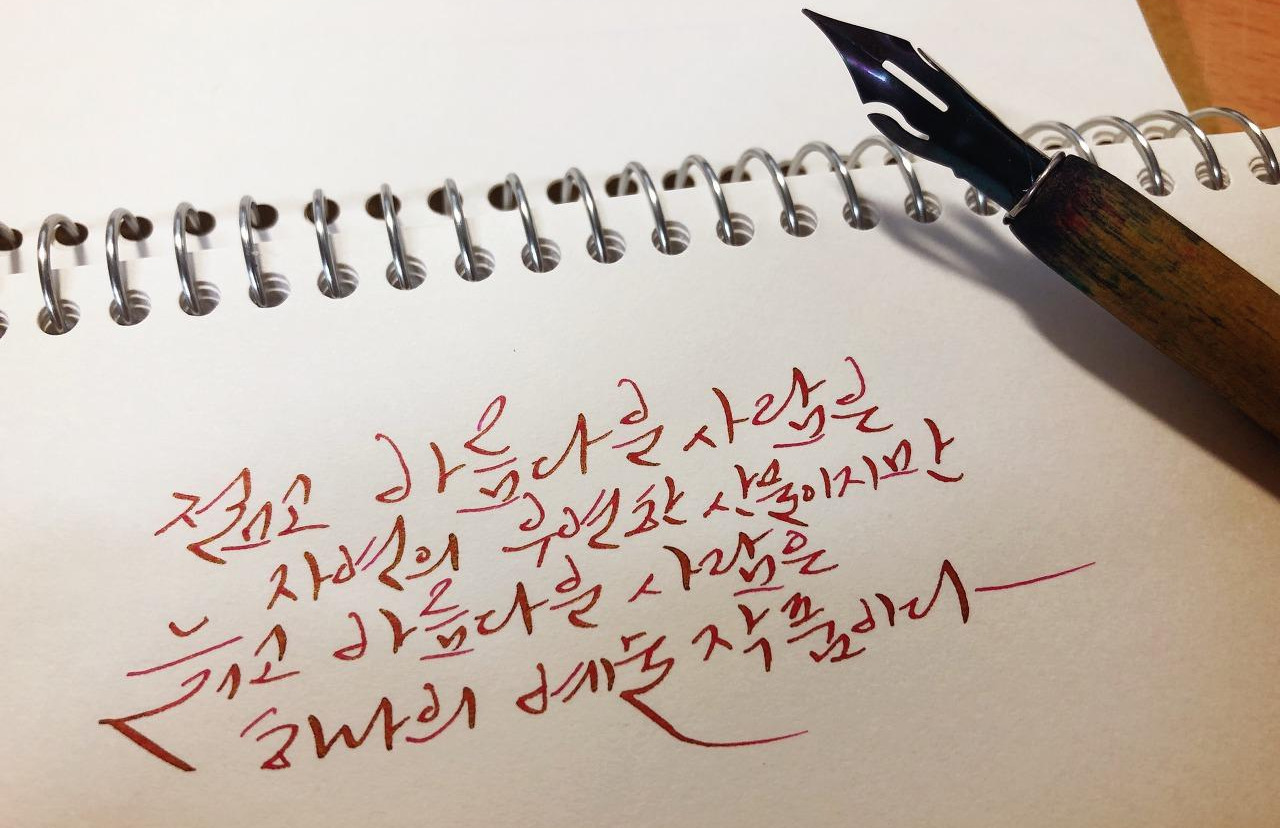 젊고 아름다운 사람은
자연의 우연한 산물이지만
늙고 아름다운 사람은
하나의 예술 작품이다